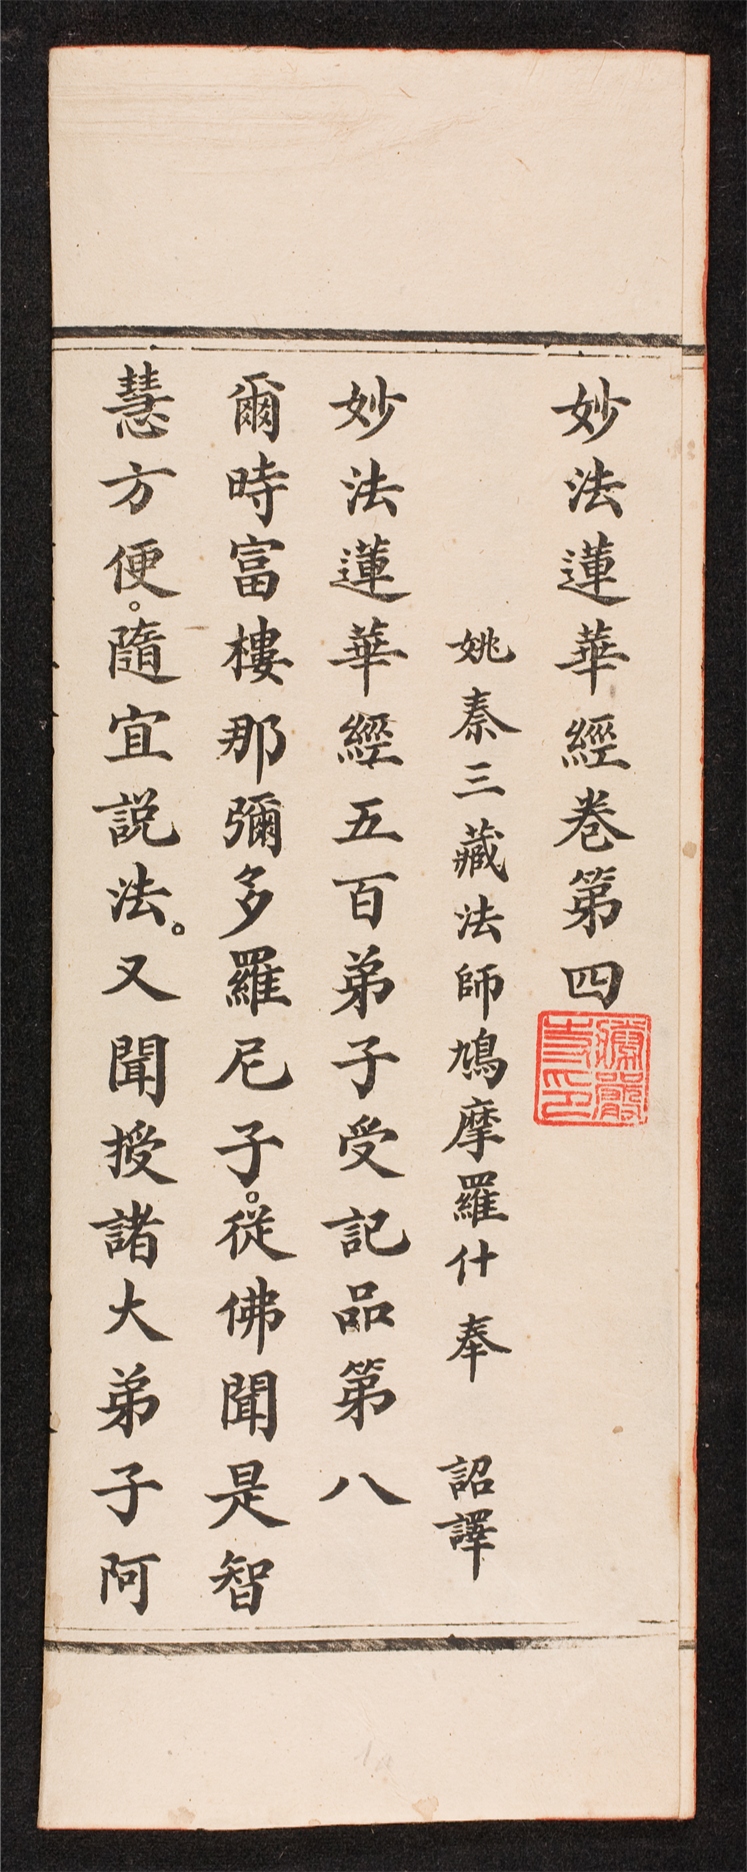 妙法蓮華經卷第四
姚秦三藏法師鳩摩羅什奉　詔譯
妙法蓮華經五百弟子受記品第八
爾時富樓那彌多羅尼子。從佛聞是智
慧方便。隨宜説法。又聞授諸大弟子阿